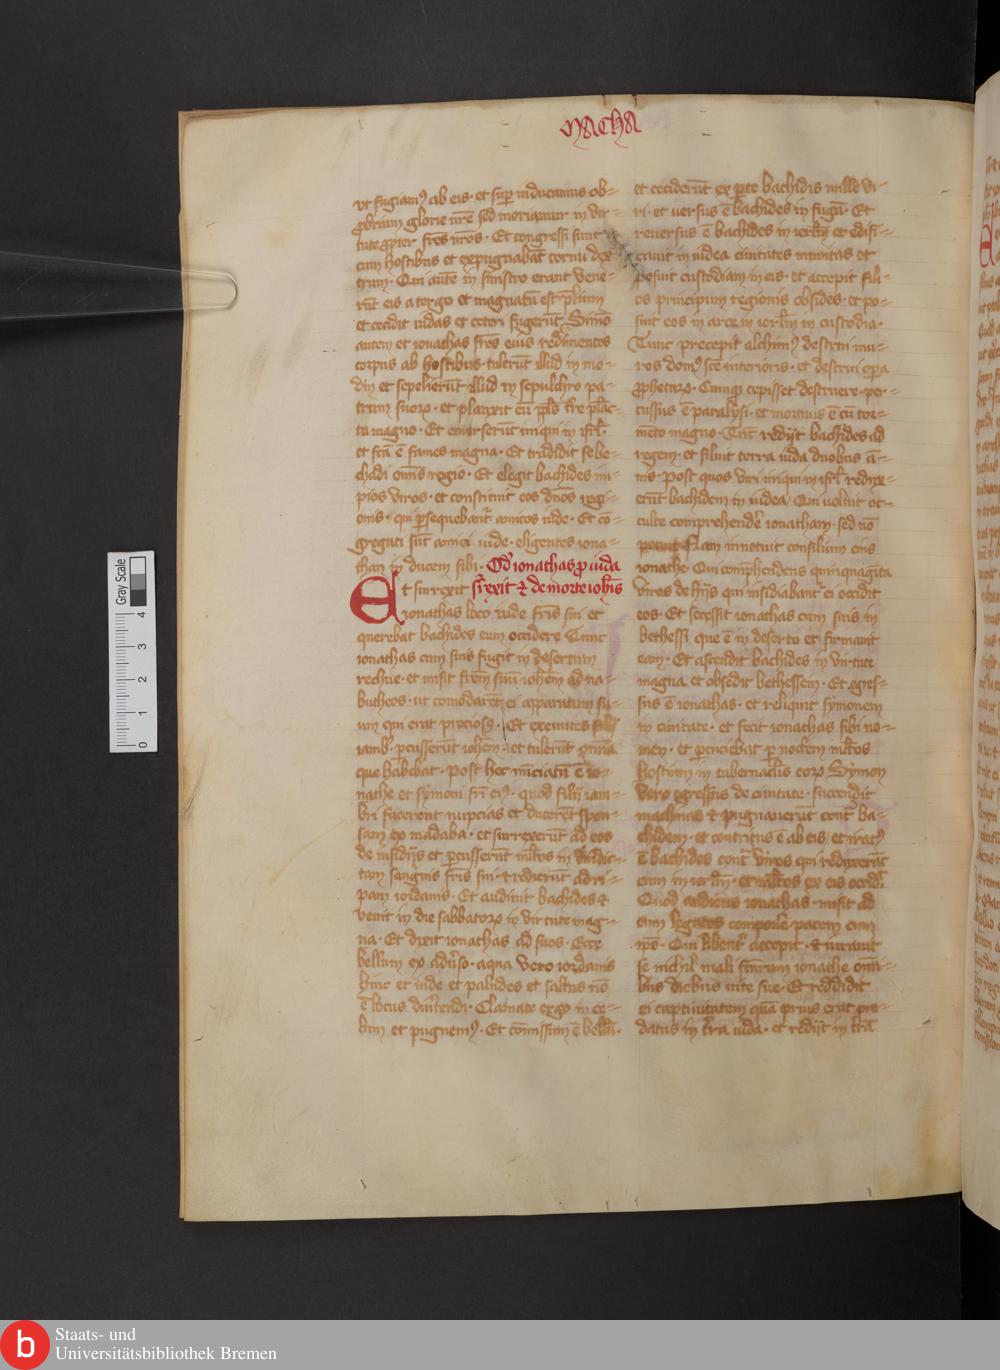 Macha
vt fugiamꝰ ab eis · et suꝑ inducamus ob-
ꝓbrium glorie nr̄e sed moriamur in vir-
tute ꝓpter frēs nr̄os · Et congressi sunt
cum hostibus et expugnabāt cornu dex
trum · Qui autē in sinistro erant vene-
rūt eis a tergo et magnatū est p̄lium
et cecidit iudas et ceteri fugerūt Simō
autem et ionathas frēs eius redimentes
corpus ab hostibus · tulerūt illud in mo-
din et sepelierūt illud in sepulchro pa-
trum suorꝝ · et planxit eū ppl̄s isrl̄ planc-
tu magno · Et emerserūt iniqui in isrl̄ ·
et fc̄a ē fames magna · Et tradidit se ba-
chidi om̄is regio · Et elegit bachides im-
pios viros · et constituit eos dn̄os regi-
onis · qui ꝑsequebant᷑ amicos iude · Et cō-
gregati sūt amici iude · eligentes iona-
than in ducem sibi · Qd̓ ionathas ꝓ iuda
Et surrexit surrexit ⁊ de morte ioh̄is
ionathas loco iude fr̄is sui et
querebat bachides eum occidere Tunc
ionathas cum suis fugit in desertum
rechue · et misit frēm suū ioh̄em ad na-
butheos · ut comodarēt ei apparatum su-
um qui erat preciosꝰ · Et exeuntes filij
iamb̓ · ꝑcusserūt ioh̄em · et tulerūt omnia
que habebat · Post hec nūciatū ē io-
nathe et symoni fr̄i eiꝰ · quod filij iam-
bri facerent nupcias et ducerēt spon-
sam ex madaba · et surrexerūt ad eos
de insidijs et ꝑcusserūt ml̄tos in vindic-
tam sanguis fr̄is sui · ⁊ redierūt ad ri-
pam iordanis · Et audiuit bachides ⁊
venit in die sabbatorꝝ in virtute mag-
na · Et dixit ionathas ad suos · Ecce
bellum ex adv̓so · aqua vero iordanis
hinc et inde et paludes et saltus nō
ē locus diu̓tendi · Clamate ergo in ce-
lum et pugnemꝰ · Et cōmissum ē bellū ·
et ceciderūt ex ꝑte bachidis mille vi-
ri · et uersus ē bachides in fugā · Et
reuersus ē bachides in ierl̄m et edifi-
cauit in iudea ciuitates munitas et
posuit custodiam in eis · et accepit fili-
os principum regionis obsides · et po-
suit eos in arce in ierl̄m in custodia ·
Tunc precepit alchimꝰ destrui mu-
ros domꝰ scē interioris · et destrui oꝑa
ꝓphetarꝝ · Cumqꝫ cepisset destruere · per-
cussus ē paralysi · et mortuus ē cū tor-
mēto magno · Tūc redijt bachides ad
regem · et siluit terra iuda duobus ā-
nis · Post quos viri iniqui in isrl̄ redux-
erūt bachidem in iudea Qui voluit oc-
culte comprehender̄ ionathan · sed nō
potuit Nam innotuit consilium eius
ionathe · Qui comp̄hendens quinquaginta
viros de hijs qui insidiabant᷑ ei occidit
eos · Et secessit ionathas cum suis in
bethessi que ē in deserto et firmauit
eam · Et ascendit bachides in virtute
magna et obsedit bethessem · Et egres-
sus ē ionathas · et reliquit symonem
in ciuitate · et fecit ionathas sibi no-
men · et ꝑcuciebat ꝑ noctem ml̄tos
hostium in tabernaclis eorꝝ Symon
vero egressus de ciuitate · succendit
machinas ⁊ pugnauerūt contͣ ba-
chidem · et contritus ē ab eis et iratꝰ
ē bachides contͣ viros qui reduxerāt
eum in ierl̄m · et ml̄tos ex eis occidit
Quod audiens ionathas · misit ad
eum legatos componer̄ pacem cum
ip̄o · Qui libent᷑ accepit · ⁊ iurauit
se nichil mali fc̄urum ionathe omī-
bus diebus vite sue · Et reddidit
ei captiuitatem quā prius erat pre-
datus in t̄ra iuda · et redijt in t̄rā
Gray Scale
0 1 2 3 4
b
Staats- und
Universitätsbibliothek Bremen